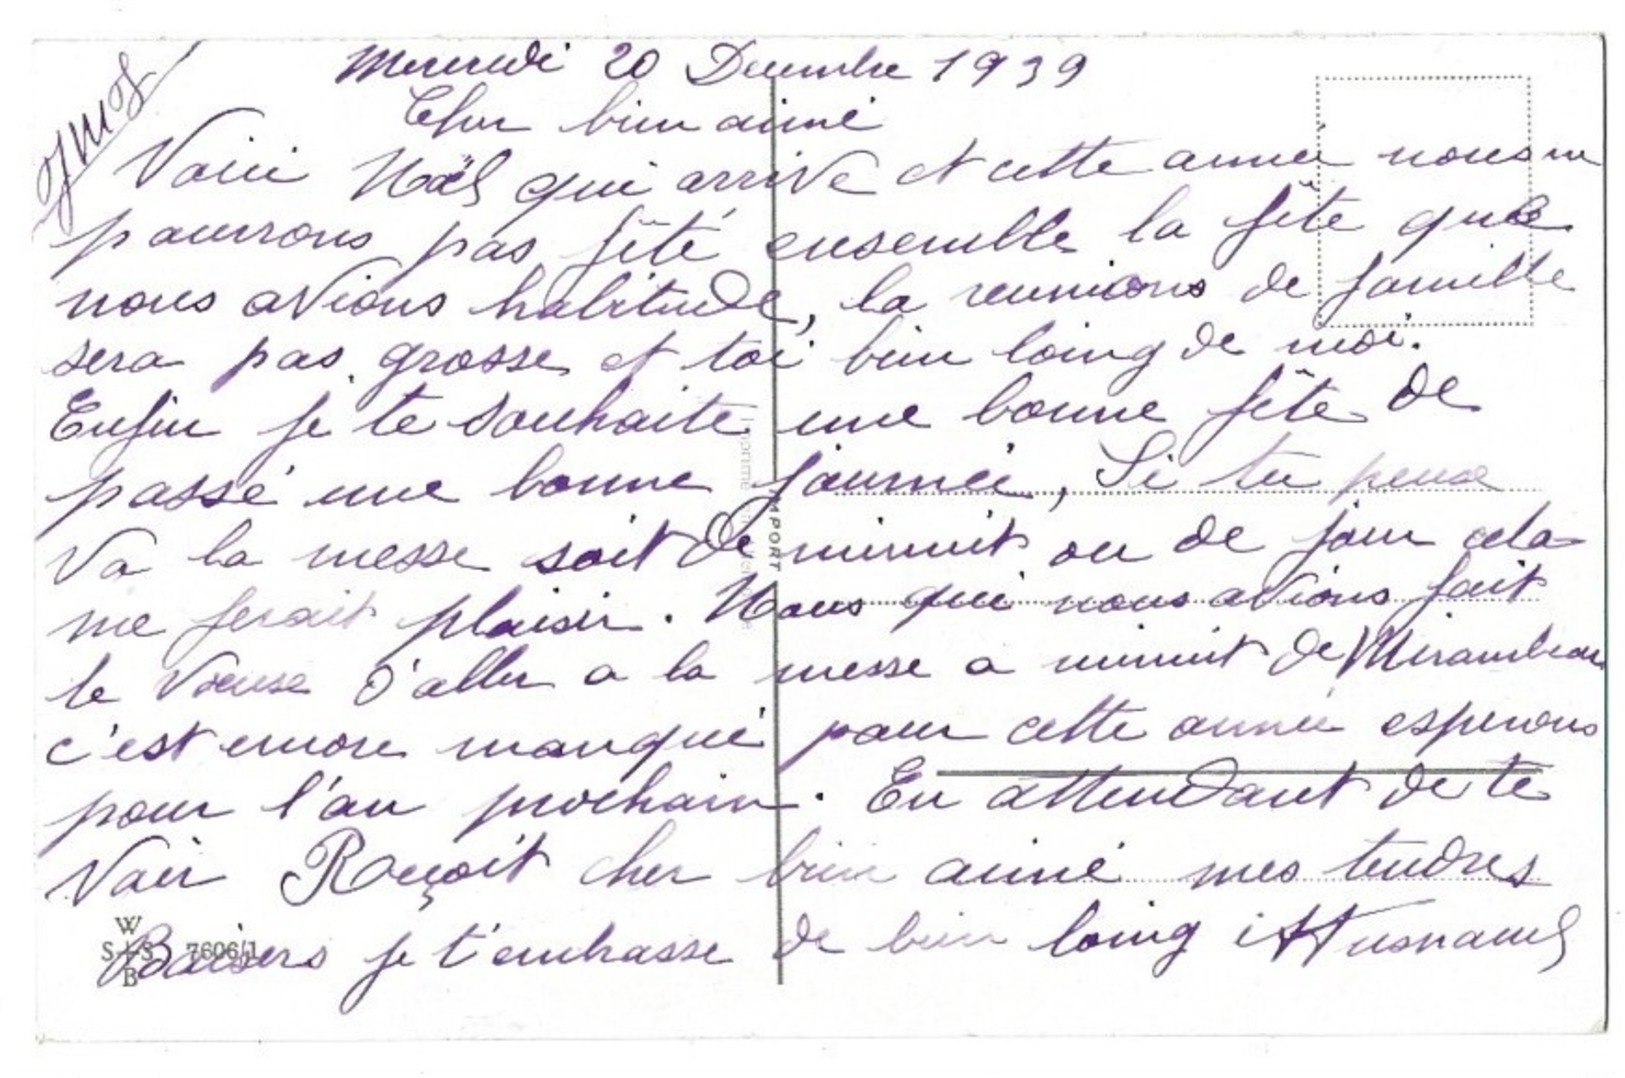 Mercredi 20 Decembre 1939
Cher bien aimé
Voici Noël qui arrive et cette année nous ne
pourrons pas fêté ensemble la fête que
nous avions habitude, la reunions de famille
sera pas grosse et toi bien loing de moi.
Enfin je te souhaite une bonne fête de
passé une bonne journée, Si tu peux
va la messe soit de minuit ou de jour cela
me ferait plaisir. Nous qui nous avions fait
le d'aller a la messe a minuit de Mirambeau
c'est encore manqué pour cette année esperons
pour l'an prochain. En attendant de te
Voir Reçoit cher bien aimé mes tendres
Baisers je t'embrasse de bien loing
W
S+S 7606/1
B
IMPORT